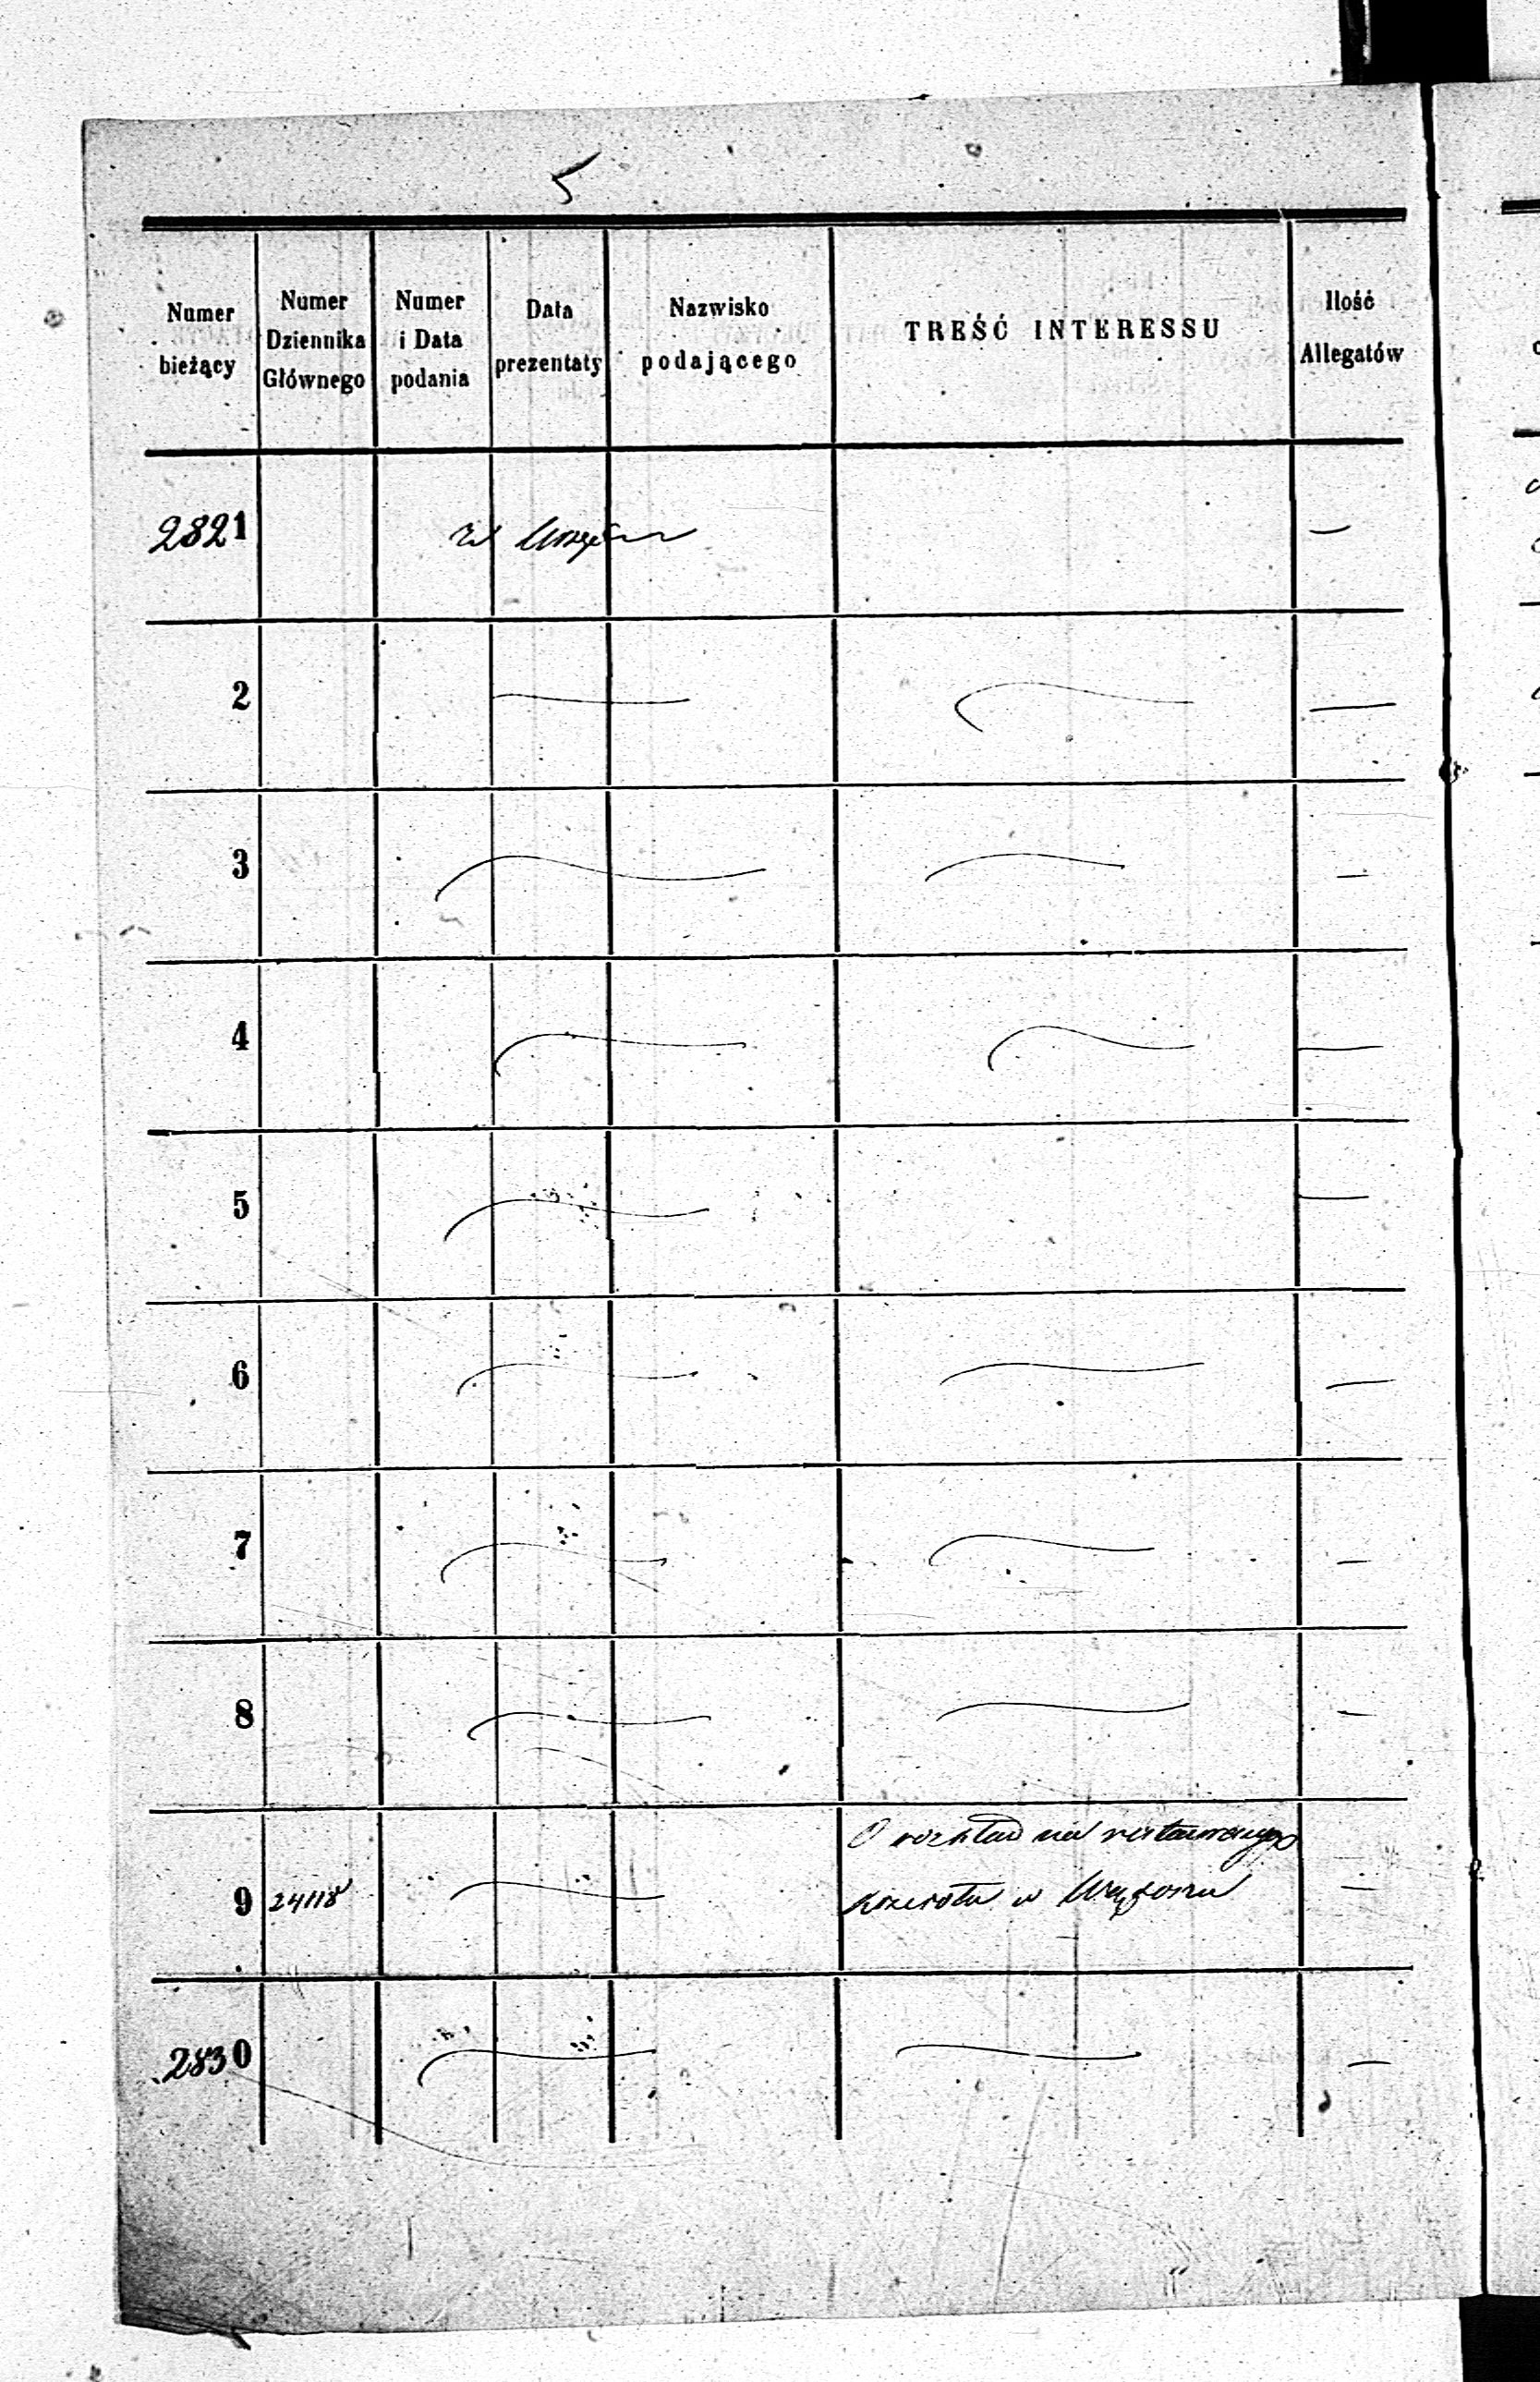 5
Numer bieżący
Numer Dziennika Głównego
Numer i Data podania
Data prezentaty
Nazwisko podającego
TREŚĆ INTERESSU
Ilość Allegatów
2821 W —
2 —
3 —
4 —
5 —
6 —
7 —
8 —
O rozkład na
9 24118 w —
2830 —